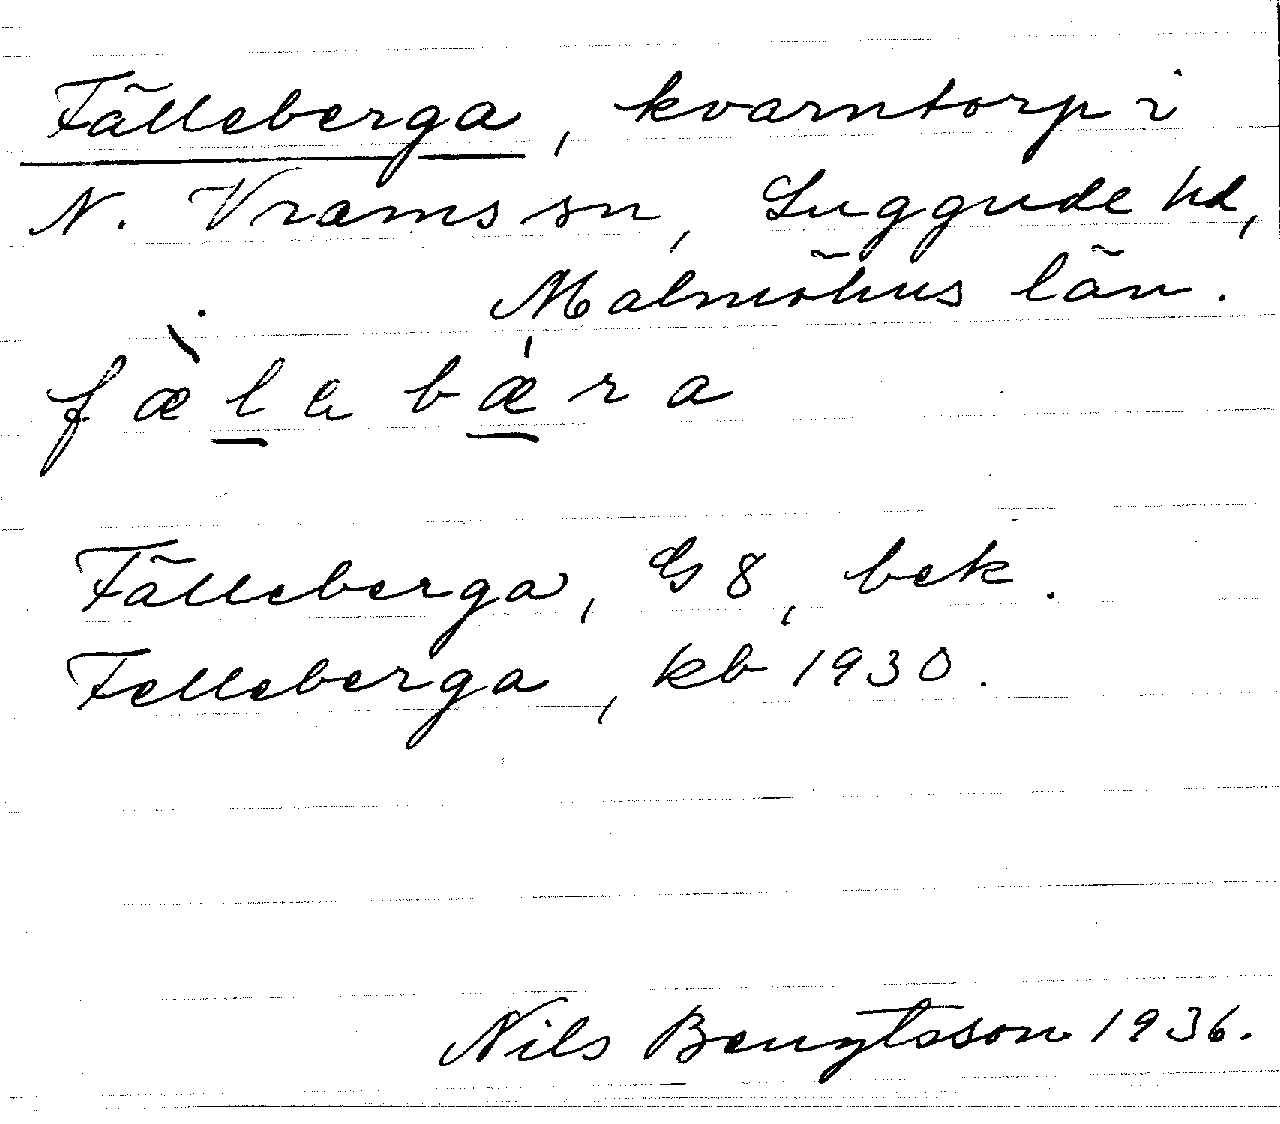 Fälleberga, kvarntorp i
N. Vrams sn, Luggude hd,
Malmöhus län.
fæ̀l̲a bǽ̲ra
Fälleberga, G 8, bek.
Felleberga, kb 1930.
Nils Bengtsson 1936.